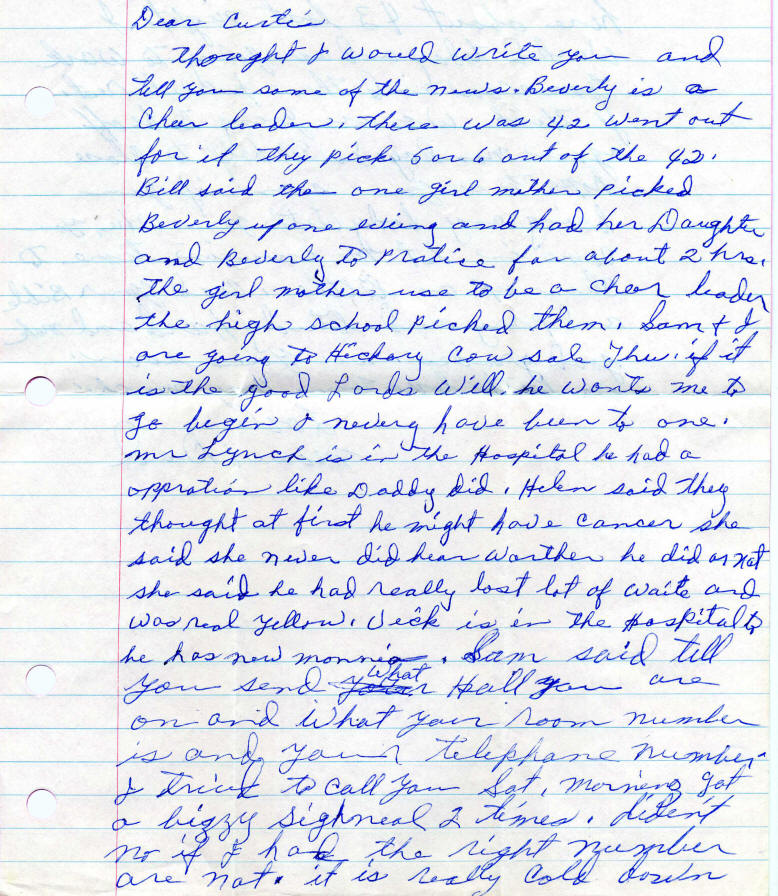 Dear Curtis
thought I would write you and
tell you some of the news. Beverly is a
Cheer leader. there was 42 went out
for it they pick 5 or 6 out of the 42.
Bill said the one girl mother picked
Beverly up one evieng and had her Daughter
and Beverly to Pratice for about 2 hrs.
the girl mother use to be a cheer leader
the high school picked them. Sam & I
are going to Hickory Cow sale Thu. if it
is the good Lords Will. he wants me to
go begin I nevery have been to one.
mr Lynch is in the Hospital he had a
oppration like Daddy did. Helen said they
thought at first he might have cancer she
said she never did hear warther he did or not
she said he had really lost lot of waite and
was real yellow. Veck is in the Hospital to
he has new monnia. Sam said tell
you send what Hall you are
on and what your room number
is and your telephone number
I tried to call you Sat. morning got
a bizzy sighneal 2 times. dident
no if I had the right number
are not. it is really cold down